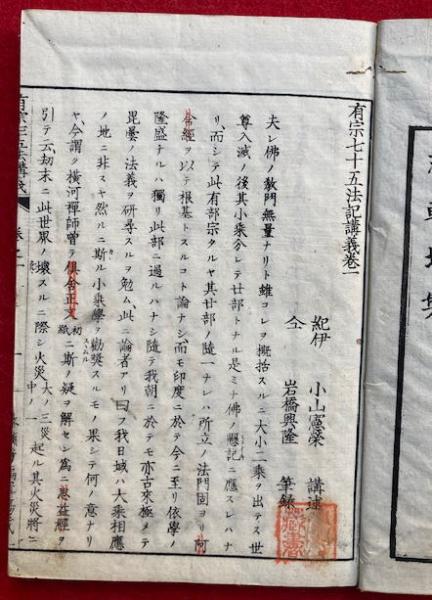 有宗七十五法記講義卷一
紀伊 小山憲榮 講述
仝 岩橋興隆 筆錄
夫レ佛ノ教門無量ナリト雖コレヲ概括スルニ大小二乘ヲ出テス世
尊入滅ノ後其小乘分レテ廿部トナル是ミナ佛ノ懸記ニ應スレハナ
リ而シテ此有部宗タルヤ其廿部ノ隨一ナレハ所立ノ法門固ヨリ阿
含經ヲ以テ根基トスルコト論ナシ而モ印度ニ於テ今ニ至リ依學ノ
隆盛ナルハ獨リ此部ニ過ルハナシ隨テ我朝ニ於テモ亦古來極メテ
毘曇ノ法義ヲ研尋スルヲ勉ム此ニ論者アリ曰フ我日域ハ大乘相應
ノ地ニ非スヤ然ルニ斯ル小乘學ヲ勸奬スルモノ果シテ何ノ意ナリ
ヤ今謂ク横河禪師曾テ俱舍正文ノ初ニ斯ノ疑ヲ解セン爲ニ思益經ヲ
引テ云劫末ニ此世界ノ壞スルニ際シ火災大ノ三災中ノ一起ル其火災將ニ